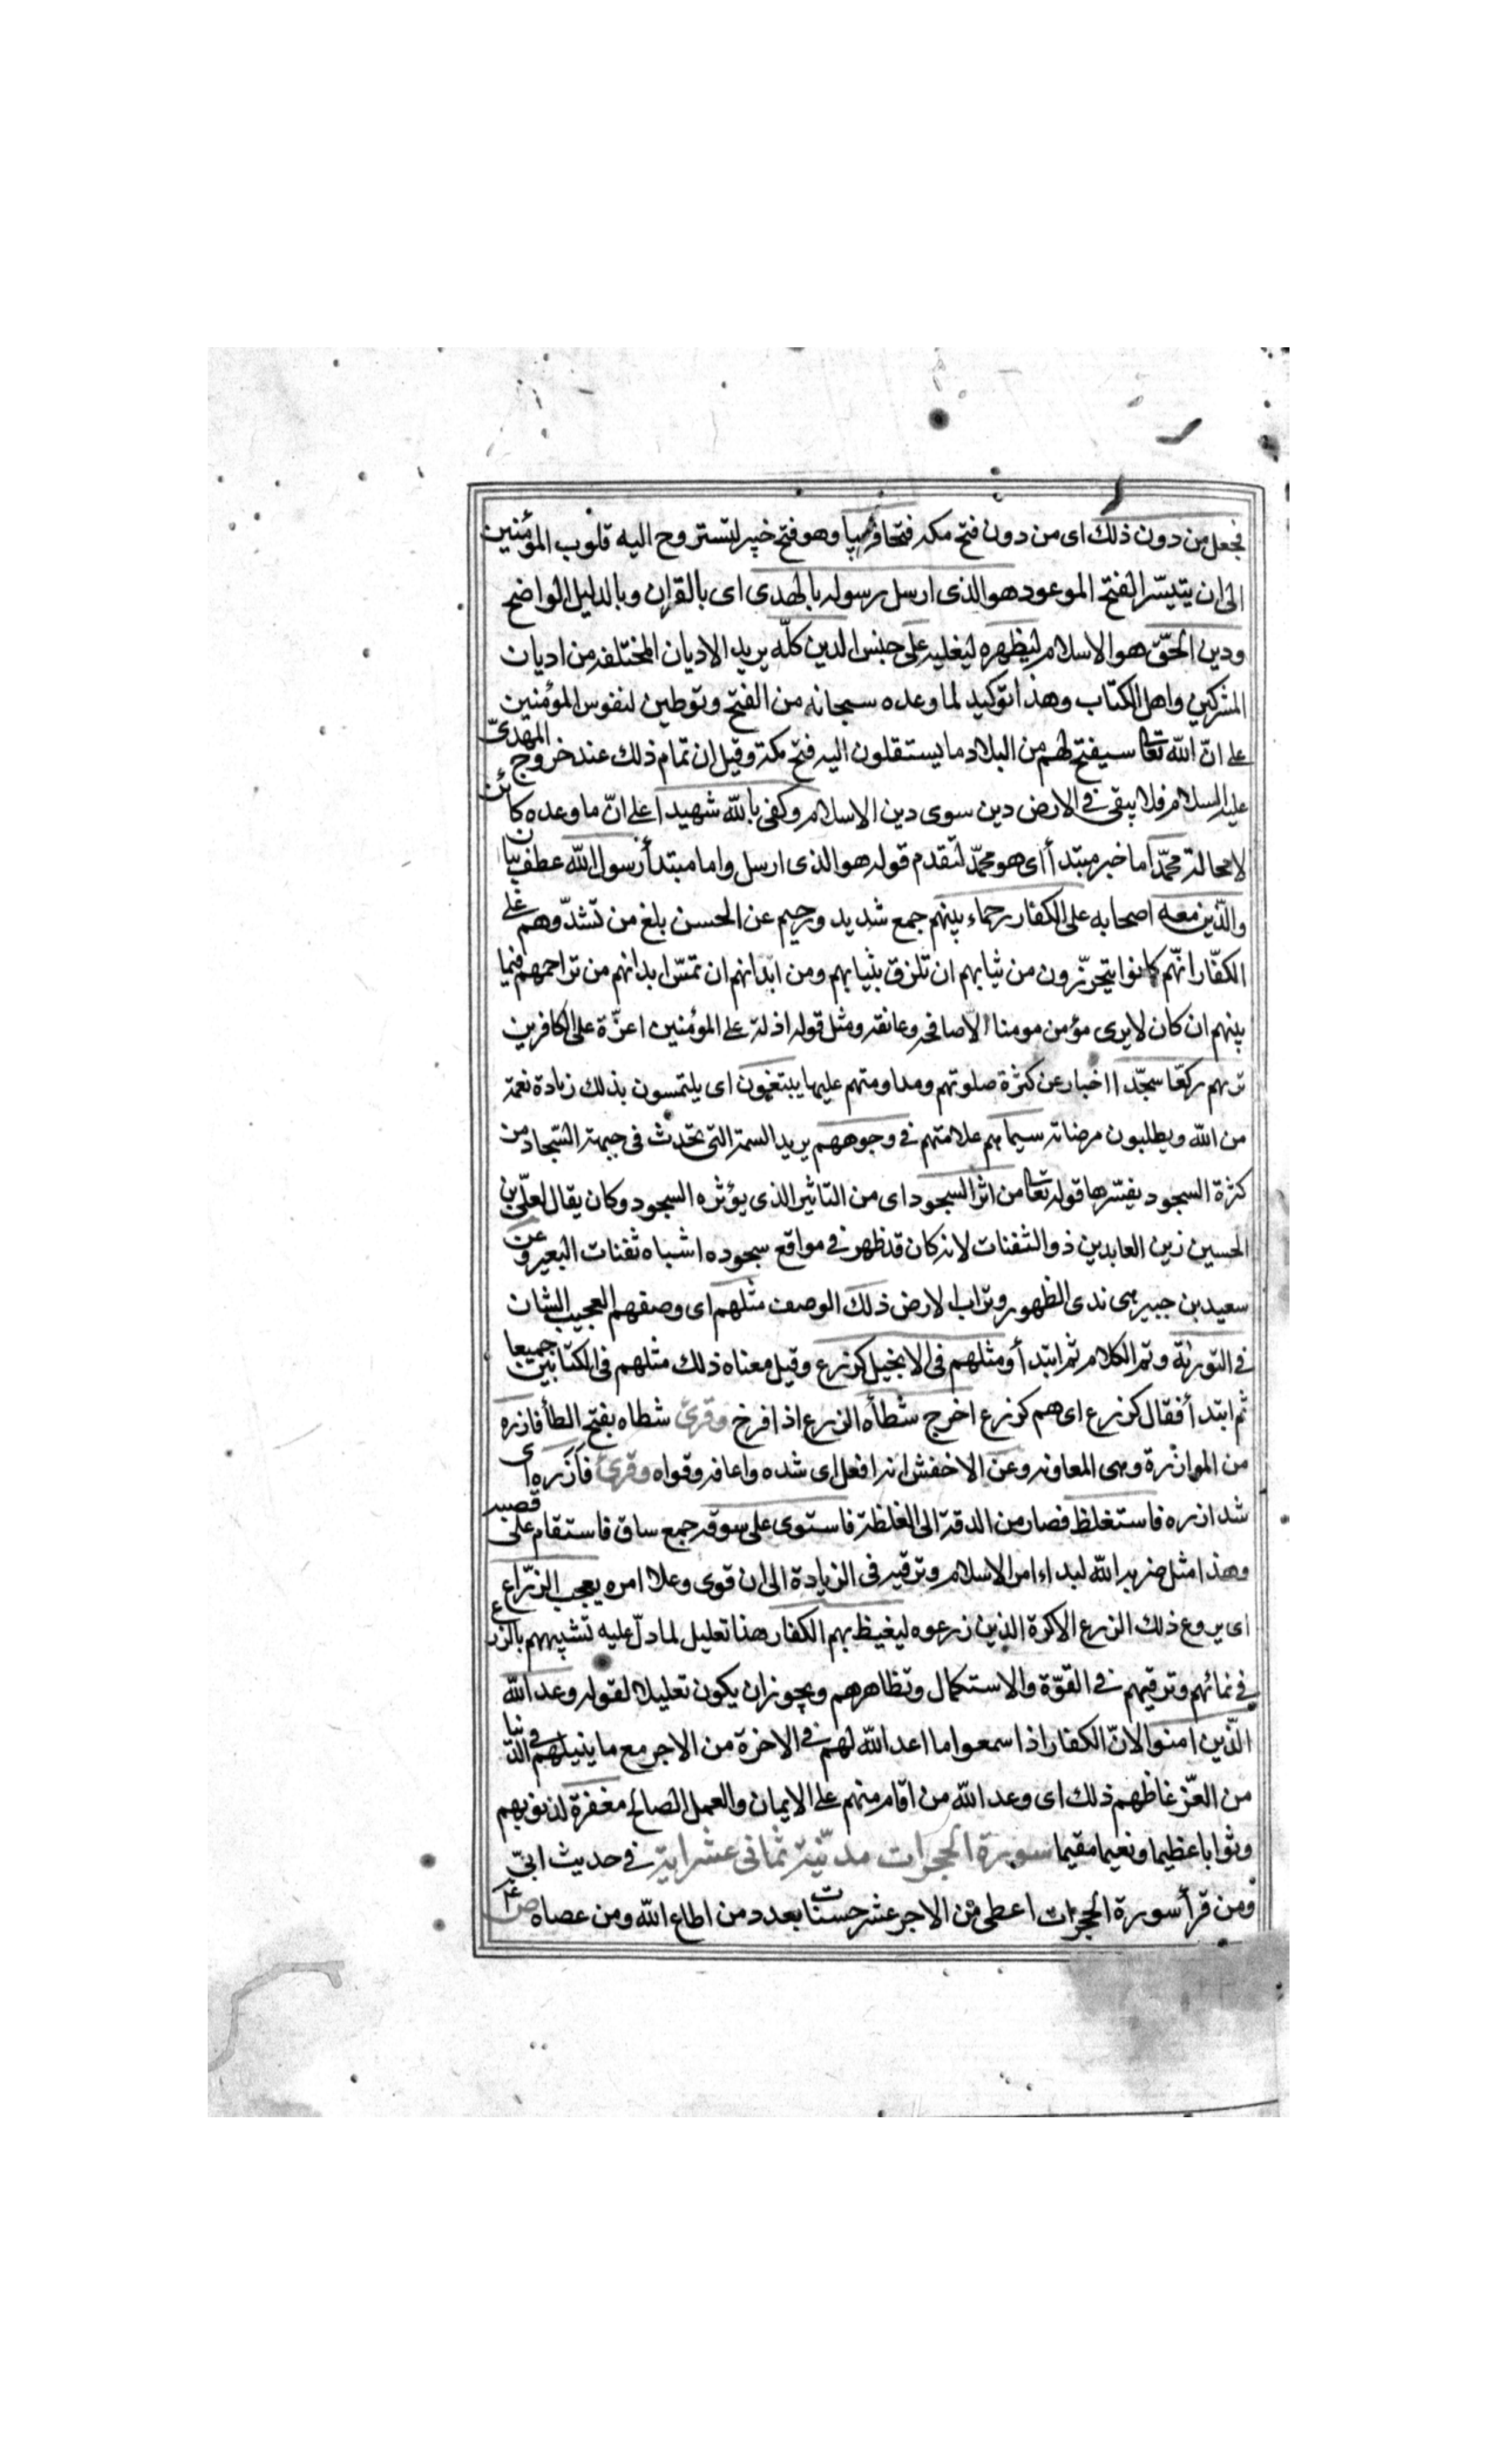 فجعل من دون ذلك اى من دون فتح مكه فتحا قريبا وهو فتح خيبر لتستروح اليه قلوب المؤمنين
الى ان يتيسّر الفتح الموعود هو الذى ارسل رسوله بالهدى اى بالقران وبالدليل الواضح
ودين الحقّ هو الاسلام ليظهره ليغلبه على جنس الدين كلّه يريد الاديان المختلفه من اديان
المشركين واهل الكتاب وهذا توكيد لما وعده سبحانه من الفتح وتوطين لنفوس المؤمنين
على انّ الله تعا سيفتح لهم من البلاد ما يستقلون اليه فتح مكة وقيل ان تمام ذلك عند خروج المهدىّ
عليه السلام فلا يبقى فى الارض دين سوى دين الاسلام وكفى بالله شهيدا على انّ ما وعده كائن
لا محالة محمّد اما خبر مبتدأ اى هو محمّد لتقدم قوله هو الذى ارسل واما مبتدأ رسول الله عطف بيان
والّذين معه اصحابه على الكفار رحماء بينهم جمع شديد ورحيم عن الحسن بلغ من تشدّوهم على
الكفّار انّهم كانوا يتحرّزون من ثيابهم ان تلزق بثيابهم ومن ابدانهم ان تمسّ ابدانهم من تراحمهم فيما
بينهم ان كان لا يرى مؤمن مومنا الّا صافحه وعانقه ومثل قوله اذلة على المؤمنين اعزّة على الكافرين
تريهم ركعّا سجّدا اخبار عن كثرة صلوتهم ومداومتهم عليها يبتغون اى يلتمسون بذلك زيادة نعمة
من الله ويطلبون مرضاته سيماهم علامتهم فى وجوههم يريد السمة التى تحدث فى جبهة السّجاد من
كثرة السجود يفسّرها قوله تعا من اثر السجود اى من التاثير الذى يؤثره السجود وكان يقال لعلّى بن
الحسين زين العابدين ذو الثفنات لانه كان قد ظهر فى مواقع سجوده اشباه ثفنات البعير وعن
سعيد بن جبير هى ندى الطهور وتراب الارض ذلك الوصف مثلهم اى وصفهم العجيب الشان
فى التورية وتم الكلام ثم ابتدأ ومثلهم فى الانجيل كزرع وقيل معناه ذلك مثلهم فى الكتابين جميعا
ثم ابتدأ فقال كزرع اى هم كزرع اخرج شطأه الزرع اذا فرخ وقرئ شطاه بفتح الطأ فازره
من الموازرة وهى المعاونه وعن الاخفش انه افعل اى شده واعانه وقواه وقرئ فأزره اى
شد ازره فاستغلظ فصار من الدقة الى الغلظة فاستوى على سوقه جمع ساق فاستقام على قصبه
وهذا مثل ضربه الله لبداء امر الاسلام وترقيه فى الزيادة الى ان قوى وعلا امره يعجب الزرّاع
اى يروع ذلك الزرع الاكرة الذين زرعوه ليغيظ بهم الكفار هذا تعليل لما دلّ عليه تشبيههم بالزرع
فى نمائهم وترقيهم فى القوّة والاستكمال وتظاهرهم ويجوز ان يكون تعليلا لقوله وعد الله
الّذين امنوا لانّ الكفار اذا سمعوا ما اعد الله لهم فى الاخرة من الاجر مع ما ينيلهم فى الدّنيا
من العزّ غاظهم ذلك اى وعد الله من اقام منهم على الايمان والعمل الصالح مغفرة لذنوبهم
وثوابا عظيما ونعيما مقيما سورة الحجرات مدنيّة ثمانى عشر اية فى حديث ابىّ
ومن قرأ سورة الحجرات اعطى من الاجر عشر حسنات بعدد من اطاع الله ومن عصاه